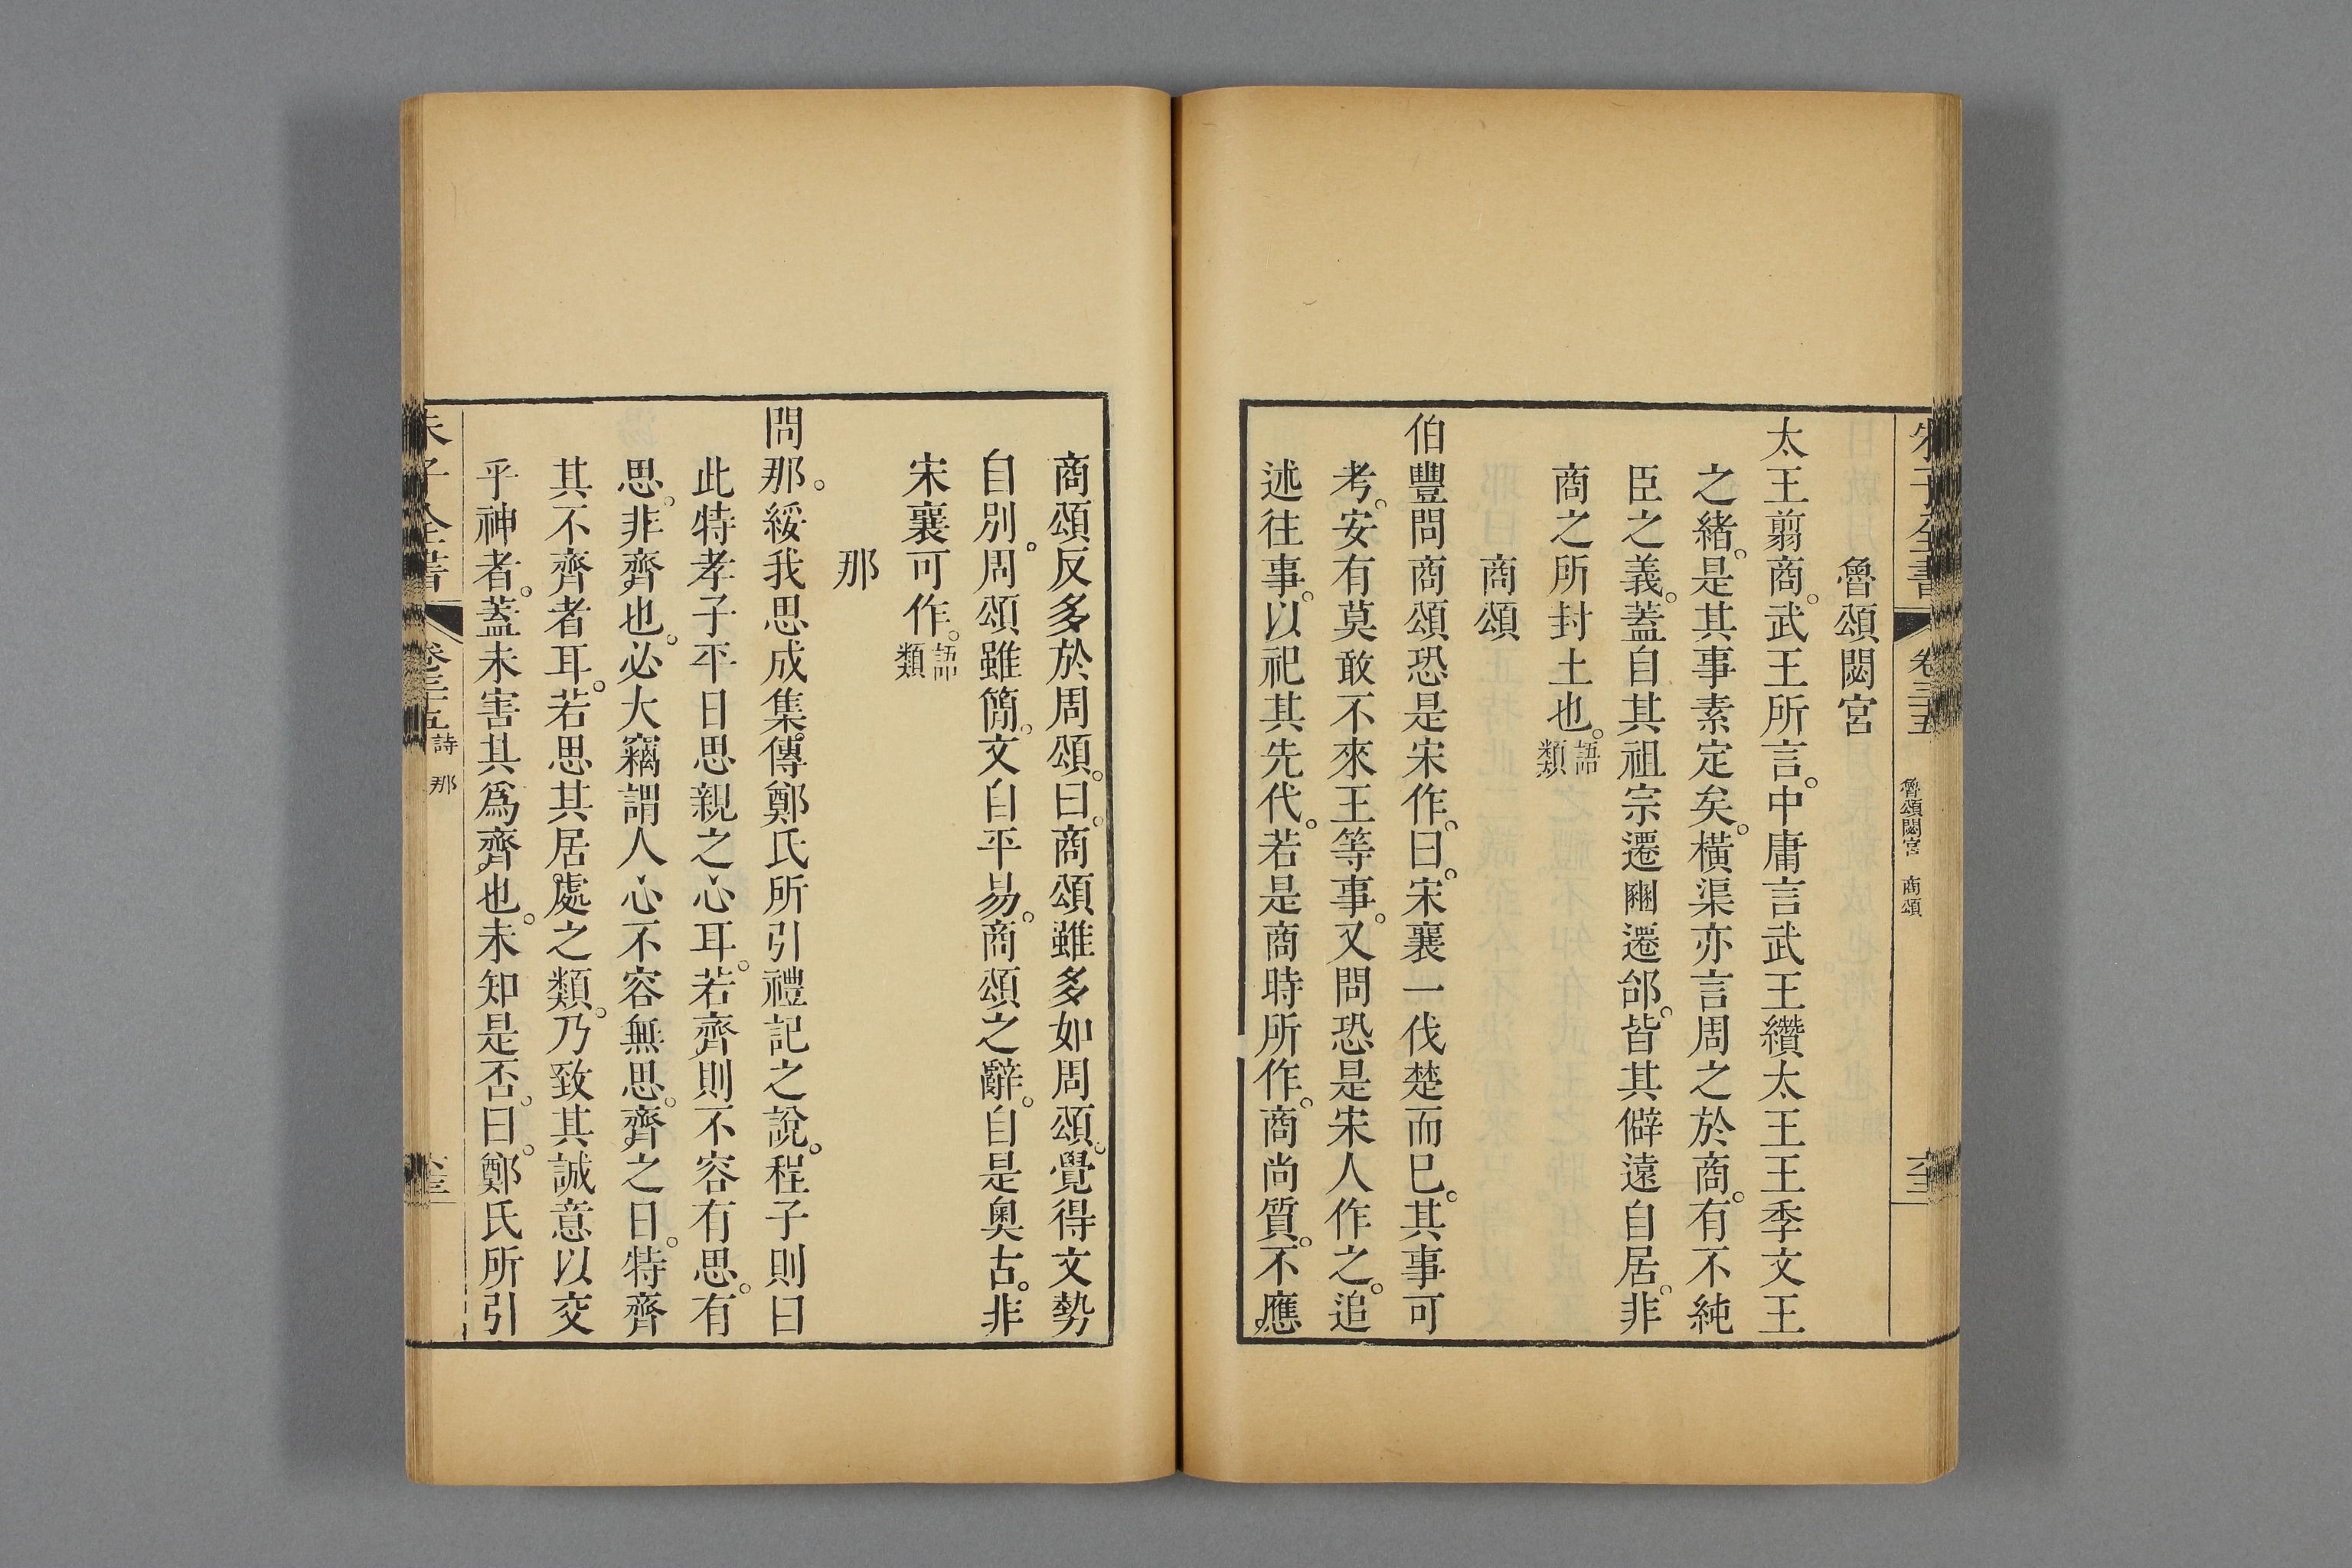 朱子全書 卷三十五 魯頌閟宮 商頌 六三
魯頌閟宮
太王翦商。武王所言。中庸言武王纘太王王季文王
之緒。是其事素定矣。橫渠亦言周之於商。有不純
臣之義。蓋自其祖宗遷豳遷邰。皆其僻遠自居。非
商之所封土也。語類
商頌
伯豐問商頌恐是宋作。曰。宋襄一伐楚而已。其事可
考。安有莫敢不來王等事。又問恐是宋人作之。追
述往事。以祀其先代。若是商時所作。商尚質。不應
商頌反多於周頌。曰。商頌雖多如周頌。覺得文勢
自別。周頌雖簡。文自平易。商頌之辭。自是奧古。非
宋襄可作。語類
那
問那。綏我思成集傳鄭氏所引禮記之說。程子則曰
此特孝子平日思親之心耳。若齊則不容有思。有
思。非齊也。必大竊謂人心不容無思。齊之日。特齊
其不齊者耳。若思其居處之類。乃致其誠意以交
乎神者。蓋未害其爲齊也。未知是否。曰。鄭氏所引
朱子全書 卷三十五 詩 那 六三